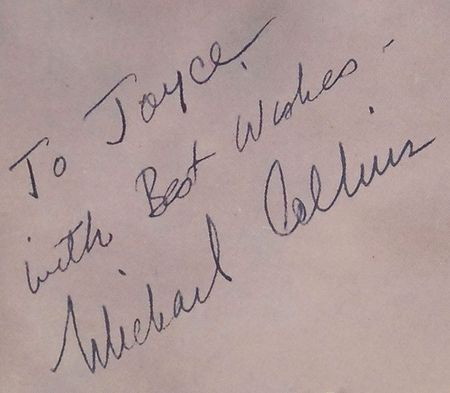 To Joyce,
with Best Wishes -
Michael Collins